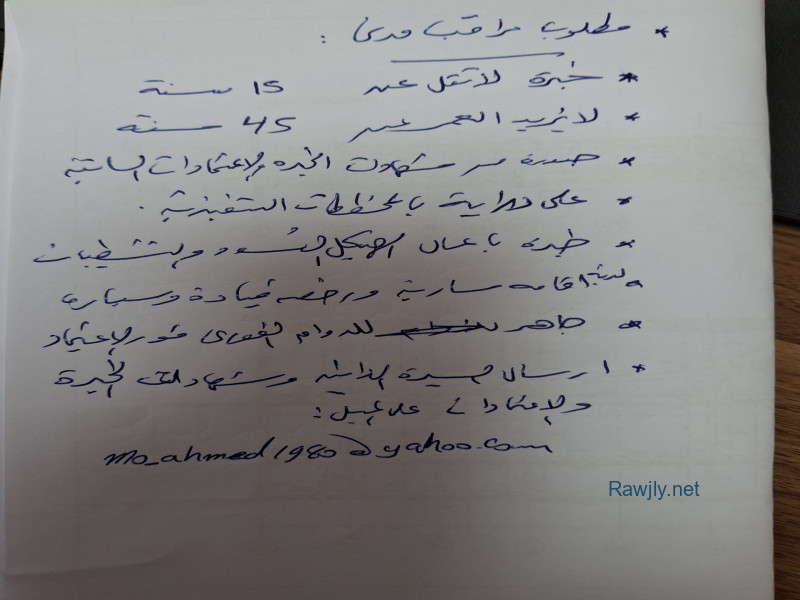 * مطلوب مراقب مدنى :
* خبرة لا تقل عن 15 سنة
* لا يزيد العمر عن 45 سنة
* صورة من شهادات الخبره والاعتمادات السابقة
* على دراية بالمخططات التنفيذية .
* خبره باعمال الهيكل الاسود والتشطيبات
* لديه اقامه سارية ورخصه قيادة وسياره
* جاهز للدوام الفورى فور الاعتماد
* ارسال السيرة الذاتيه وشهادات الخبرة
والاعتمادات على الميل :
mo_ahmed1980@yahoo.com
Rawjly.net